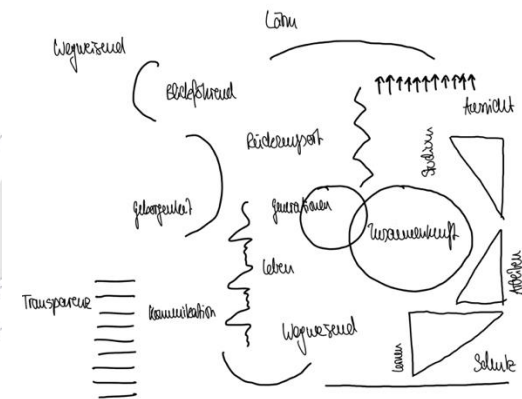 Lärm
Wegweisend
Blickführend
Aussicht
Rückenport
Studium
Geborgenheit
Generationen
Zusammenkunft
Leben
Arbeiten
Transparenz
Kommunikation
Wegweisend
Lernen
Schutz